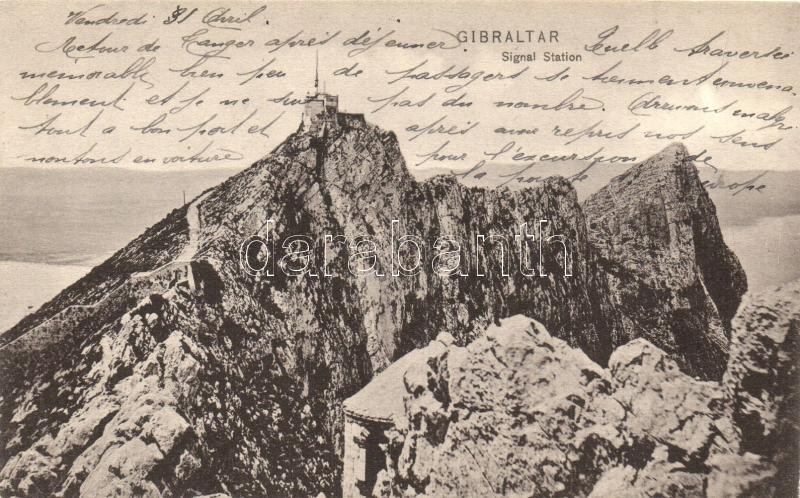 Vendredi 31 Avril.
GIBRALTAR
Signal Station
Retour de Tanger après déjeuner. Quelle traversée
mémorable bien peu de passagers se
blement et je ne suis pas du nombre. Arrivons malgré
tout a bon port et après avoir repris nos sens
montons en voiture pour l'excursion de
la pointe d'Europe
darabanth.com